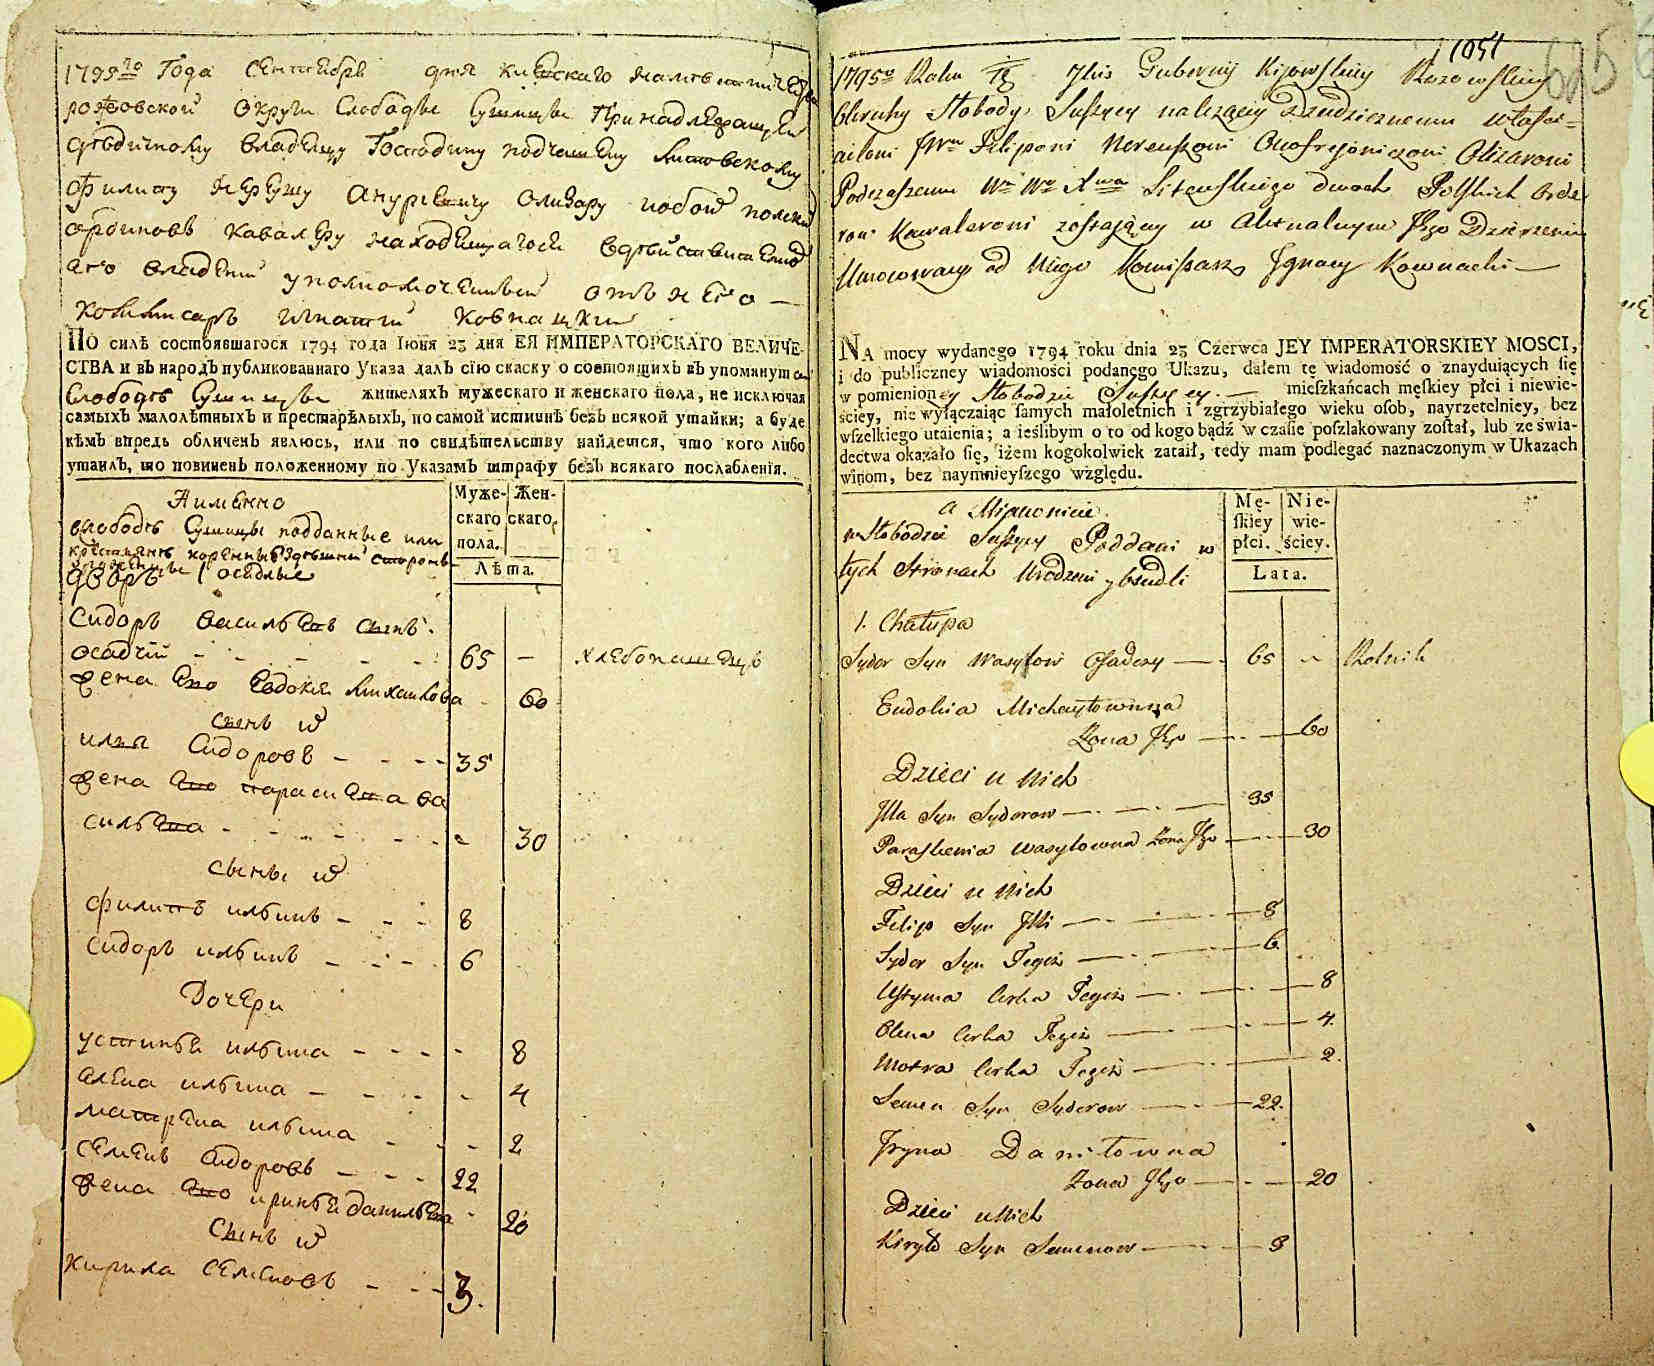 1795го Года Сентября дня Киевскаго наместничества
рожовской округи Слободы Сущицы Принадлежащей
дедичному владельцу Господину подчашему Литовскому
Филипу Нерушу Ануфриевичу Олизару
ординовъ кавалеру находящагося в действителном
его владении уполномоченный отъ него —
коммисаръ игнатий ковнацкий
ПО силѣ состоявшагося 1794 года Іюня 23 дня ЕЯ ИМПЕРАТОРСКАГО ВЕЛИЧЕ-
СТВА и въ народъ публикованнаго Указа далъ сію скаску о состоящихъ въ упомянутой
Слободѣ Сущицы жителяхъ мужескаго и женскаго пола, не исключая
самыхъ малолѣтныхъ и престарѣлыхъ, по самой истиннѣ безъ всякой утайки; а буде
кѣмъ впредь обличенъ явлюсь, или по свидѣтельству найдется, что кого либо
утаилъ, то повиненъ положенному по Указамъ штрафу безъ всякаго послабленія.
А именно
вслободѣ Сущицы подданные или
крестьяне коренные здешней стороны
Дворъ 1 оседлые
Муже-
скаго
пола.
Жен-
скаго
Лѣта.
Сидоръ васильевъ сынъ
осадчій - - - - - 65 — хлебопашецъ
жена его евдокия михаилова - 60
сынъ и
илья Сидоровъ - - - - 35
жена его параскева ва
сильева - - - - - - 30
сыны и
филипъ ильинъ - - - 8
сидоръ ильинъ - - - 6
Дочери
устинья ильина - - - - 8
алена ильина - - - - 4
матрена ильина - - - 2
семенъ сидоровъ - - - 22
жена его иринья данильева - 20
сынъ и
кирила семеновъ - - - 3.
1051
1795o Roku Guberny Kijowskiey Rozowskiey
Okruhy Słobody Suszycy należącey Dziedzicznemu właści=
cielowi JWmu Filiponi Nereuszowi Onofrejowiczowi Olizarowi
Podczaszemu Wo Wo Xwa Litewskiego dwoch Polskich Orde-
row Kawalerowi zostającey w Aktualnym Jego Dzierzeniu
Umocowany od Niego Komisarz Jgnacy Kownacki —
NA mocy wydanego 1794 roku dnia 23 Czerwca JEY IMPERATORSKIEY MOSCI,
i do publiczney wiadomości podanego Ukazu, dałem tę wiadomość o znayduiących się
w pomienioney Słobodzie Suszycy. — mieſzkańcach męſkiey płci i niewie-
ściey, nie wyłączaiąc ſamych małoletnich i zgrzybiałego wieku oſob, nayrzetelniey, bez
wſzelkiego utaienia; a ieślibym o to od kogo bądź w czaſie poſzlakowany zoſtał, lub ze świa-
dectwa okazało ſię, iżem kogokolwiek zataił, tedy mam podlegać naznaczonym w Ukazach
winom, bez naymnieyſzego względu.
a Mianowicie
w Słobodzie Suszycy Poddani w
tych Stronach Urodzeni y Osiedli
Mę-
ſkiey
płci.
Nie-
wie-
ściey.
Lata.
1. Chałupa
Sydor Syn Wasylow Osadczy —. 65 — Rolnik
Eudokia Michayłowna
Zona Jego —.— 60
Dzieci u Nich
Jlla Syn Sydorow —.— 35
Paraskewia Wasylowna Zona Jego —.— 30
Dzieci u Nich
Filip Syn Jlli —.— 8
Sydor Syn Tegoż —.— 6
Ustyma Corka Tegoż —.— 8
Olena Corka Tegoż —.— 4.
Motra Corka Tegoż —.— 2.
Semen Syn Syderow —.— 22.
Jryna Daniłowna
Zona Jego —.— 20
Dzieci u Nich
Kiryło Syn Semenow —.— 3